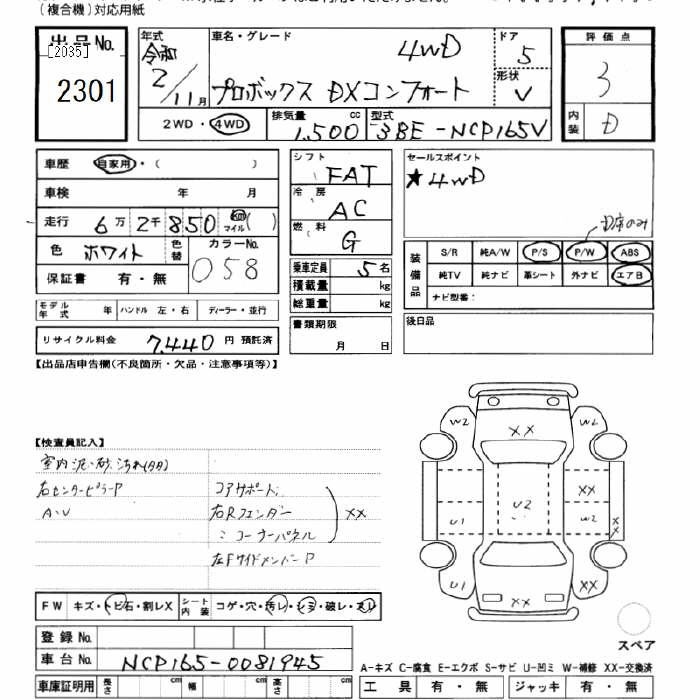 (複合機)対応用紙
出品No.
[2035]
2301
年式
令和
2/11月
車名・グレード
4WD
プロボックス DXコンフォート
ドア
5
形状
V
評価点
3
内装
D
2WD・4WD
排気量 cc
1,500
型式
3BE-NCP165V
車歴 自家用・( )
車検 年 月
走行 6万2千850 km マイル ( )
色 ホワイト 色替
カラーNo.
058
保証書 有・無
モデル年式 年 ハンドル 左・右 ディーラー・並行
リサイクル料金 7,440 円 預託済
シフト
FAT
冷房
AC
燃料
G
乗車定員 5名
積載量 kg
総重量 kg
書類期限
月 日
セールスポイント
★4WD
D席のみ
装備品
S/R 純A/W P/S P/W ABS
純TV 純ナビ 革シート 外ナビ エアB
ナビ型番:
後日品
【出品店申告欄(不良箇所・欠品・注意事項等)】
【検査員記入】
室内 泥・砂、汚れ
右センターピラーP
A・U
コアサポート
右Rフェンダー
〃 コーナーパネル
XX
左FサイドメンバーP
W2 XX W2
XX
U1 U2 W2 XX
U1 XX XX
スペア
FW キズ・トビ石・割レX
シート内装 コゲ・穴・汚レ・シミ・破レ・スレ
登録No.
車台No. NCP165-0081945
車庫証明用 長さ cm 幅 cm 高さ cm
A-キズ C-腐食 E-エクボ S-サビ U-凹ミ W-補修 XX-交換済
工具 有・無 ジャッキ 有・無